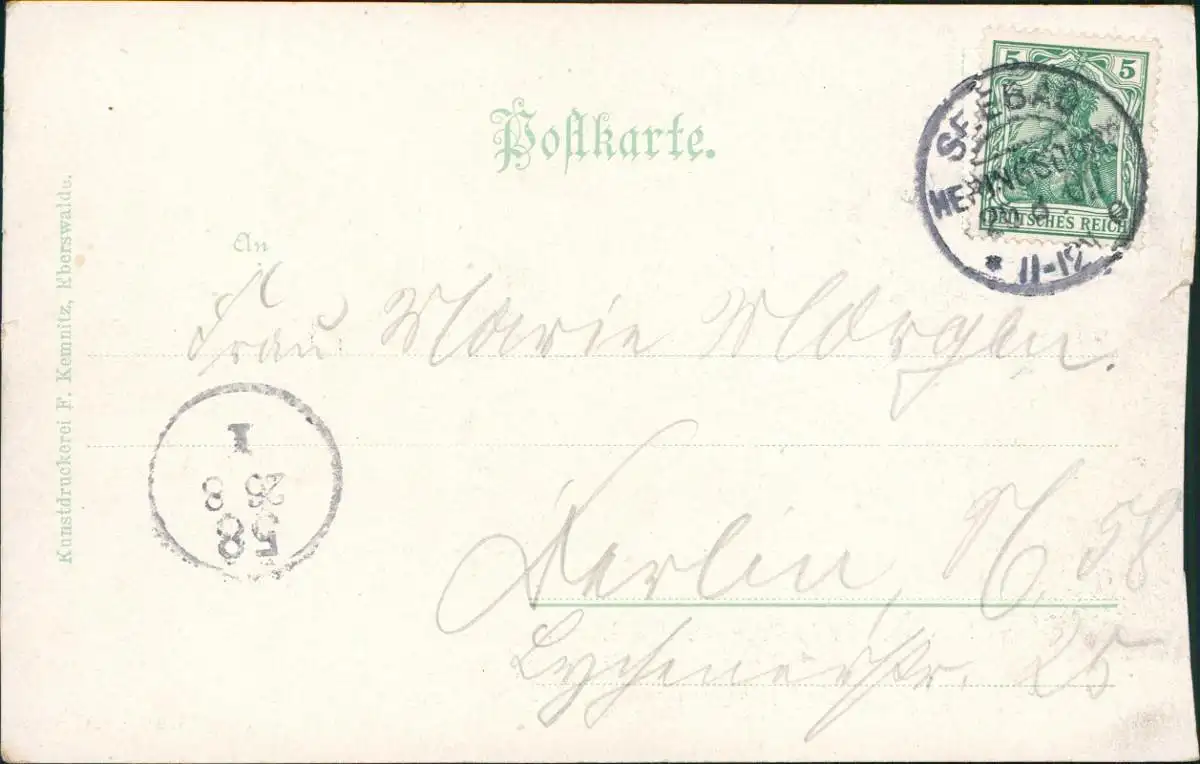 5 5
SEEBAD
HERINGSDORF
11-12
DEUTSCHES REICH
Postkarte.
An
Frau Marie Morgen.
Berlin, N. 58
Lychenerstr. 25
1
58
Kunstdruckerei F. Kemnitz, Eberswalde.